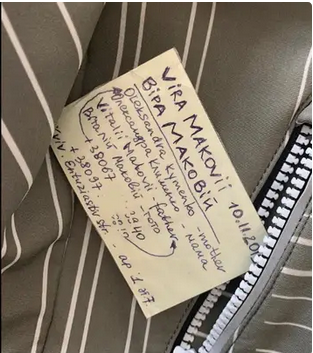 VIRA MAKOVII 10.11.20
ВІРА МАКОВІЙ
Oleksandra Klymenko - mother
Александра Клименко - мама
Vitalii Makovii - father
Віталій Маковій - тато
+38067
+38097
Kyiv. Entuziastiv str. - ap